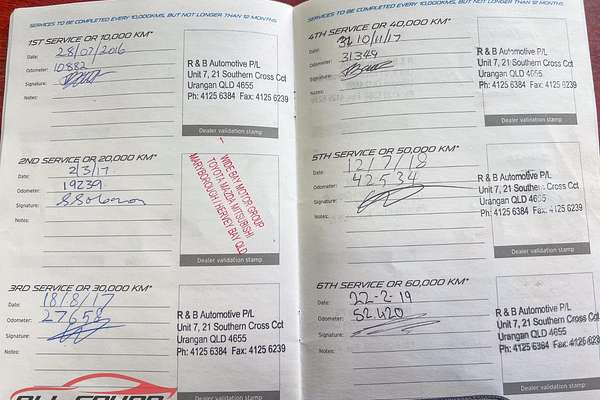 SERVICES TO BE COMPLETED EVERY 10,000KMS, BUT NOT LONGER THAN 12 MONTHS.
1ST SERVICE OR 10,000 KM*
Date: 28/07/2016
Odometer: 10882
Signature:
Notes:
R & B Automotive P/L
Unit 7, 21 Southern Cross Cct
Urangan QLD 4655
Ph: 4125 6384 Fax: 4125 6239
Dealer validation stamp
2ND SERVICE OR 20,000 KM*
Date: 2/3/17
Odometer: 19239
Signature:
Notes:
WIDE BAY MOTOR GROUP
TOYOTA MAZDA MITSUBISHI
MARYBOROUGH | HERVEY BAY QLD
Dealer validation stamp
3RD SERVICE OR 30,000 KM*
Date: 18/8/17
Odometer: 27658
Signature:
Notes:
R & B Automotive P/L
Unit 7, 21 Southern Cross Cct
Urangan QLD 4655
Ph: 4125 6384 Fax: 4125 6239
Dealer validation stamp
SERVICES TO BE COMPLETED EVERY 10,000KMS, BUT NOT LONGER THAN 12 MONTHS.
4TH SERVICE OR 40,000 KM*
Date: 10/11/17
Odometer: 31349
Signature:
Notes:
R & B Automotive P/L
Unit 7, 21 Southern Cross Cct
Urangan QLD 4655
Ph: 4125 6384 Fax: 4125 6239
Dealer validation stamp
5TH SERVICE OR 50,000 KM*
Date: 12/7/18
Odometer: 42534
Signature:
Notes:
R & B Automotive P/L
Unit 7, 21 Southern Cross Cct
Urangan QLD 4655
Ph: 4125 6384 Fax: 4125 6239
Dealer validation stamp
6TH SERVICE OR 60,000 KM*
Date: 22-2-19
Odometer: 52420
Signature:
Notes:
R & B Automotive P/L
Unit 7, 21 Southern Cross Cct
Urangan QLD 4655
Ph: 4125 6384 Fax: 4125 6239